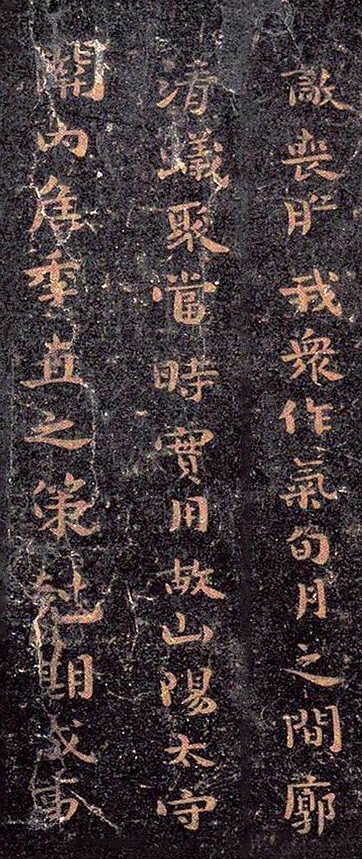 敵喪膽我眾作氣旬月之間廓
清蟻聚當時實用故山陽太守
關內侯季直之策尅期成事